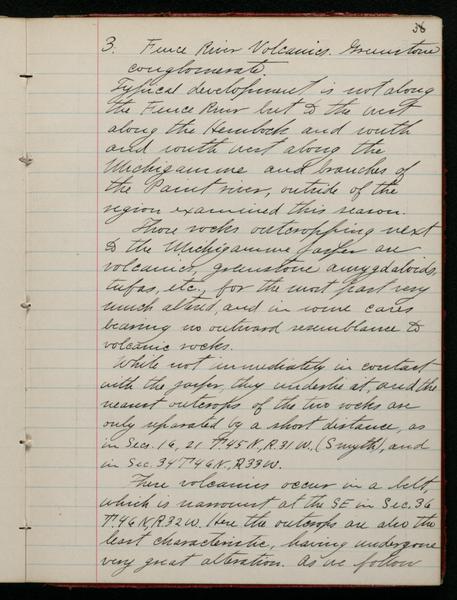 56
3. Fence River Volcanics. Greenstone
conglomerate.
Typical development is not along
the Fence River but to the west
along the Hemlock and south
and south west along the
Michigamme and branches of
the Paint river, outside of the
region examined this season.
Those rocks outcropping next
to the Michigamme jasper are
volcanics, greenstone amygdaloids,
tufas, etc., for the most part very
much altered, and in some cases
bearing no outward resemblance to
volcanic rocks.
While not immediately in contact
with the jasper, they underlie it, and the
nearest outcrops of the two rocks are
only separated by a short distance, as
in Secs. 16, 21 T.45N, R.31W. (Smyth), and
in Sec. 34 T46N, R33W.
These volcanics occur in a belt,
which is narrowest at the SE in Sec. 36
T.46N, R32W. Here the outcrops are also the
least characteristic, having undergone
very great alteration. As we follow